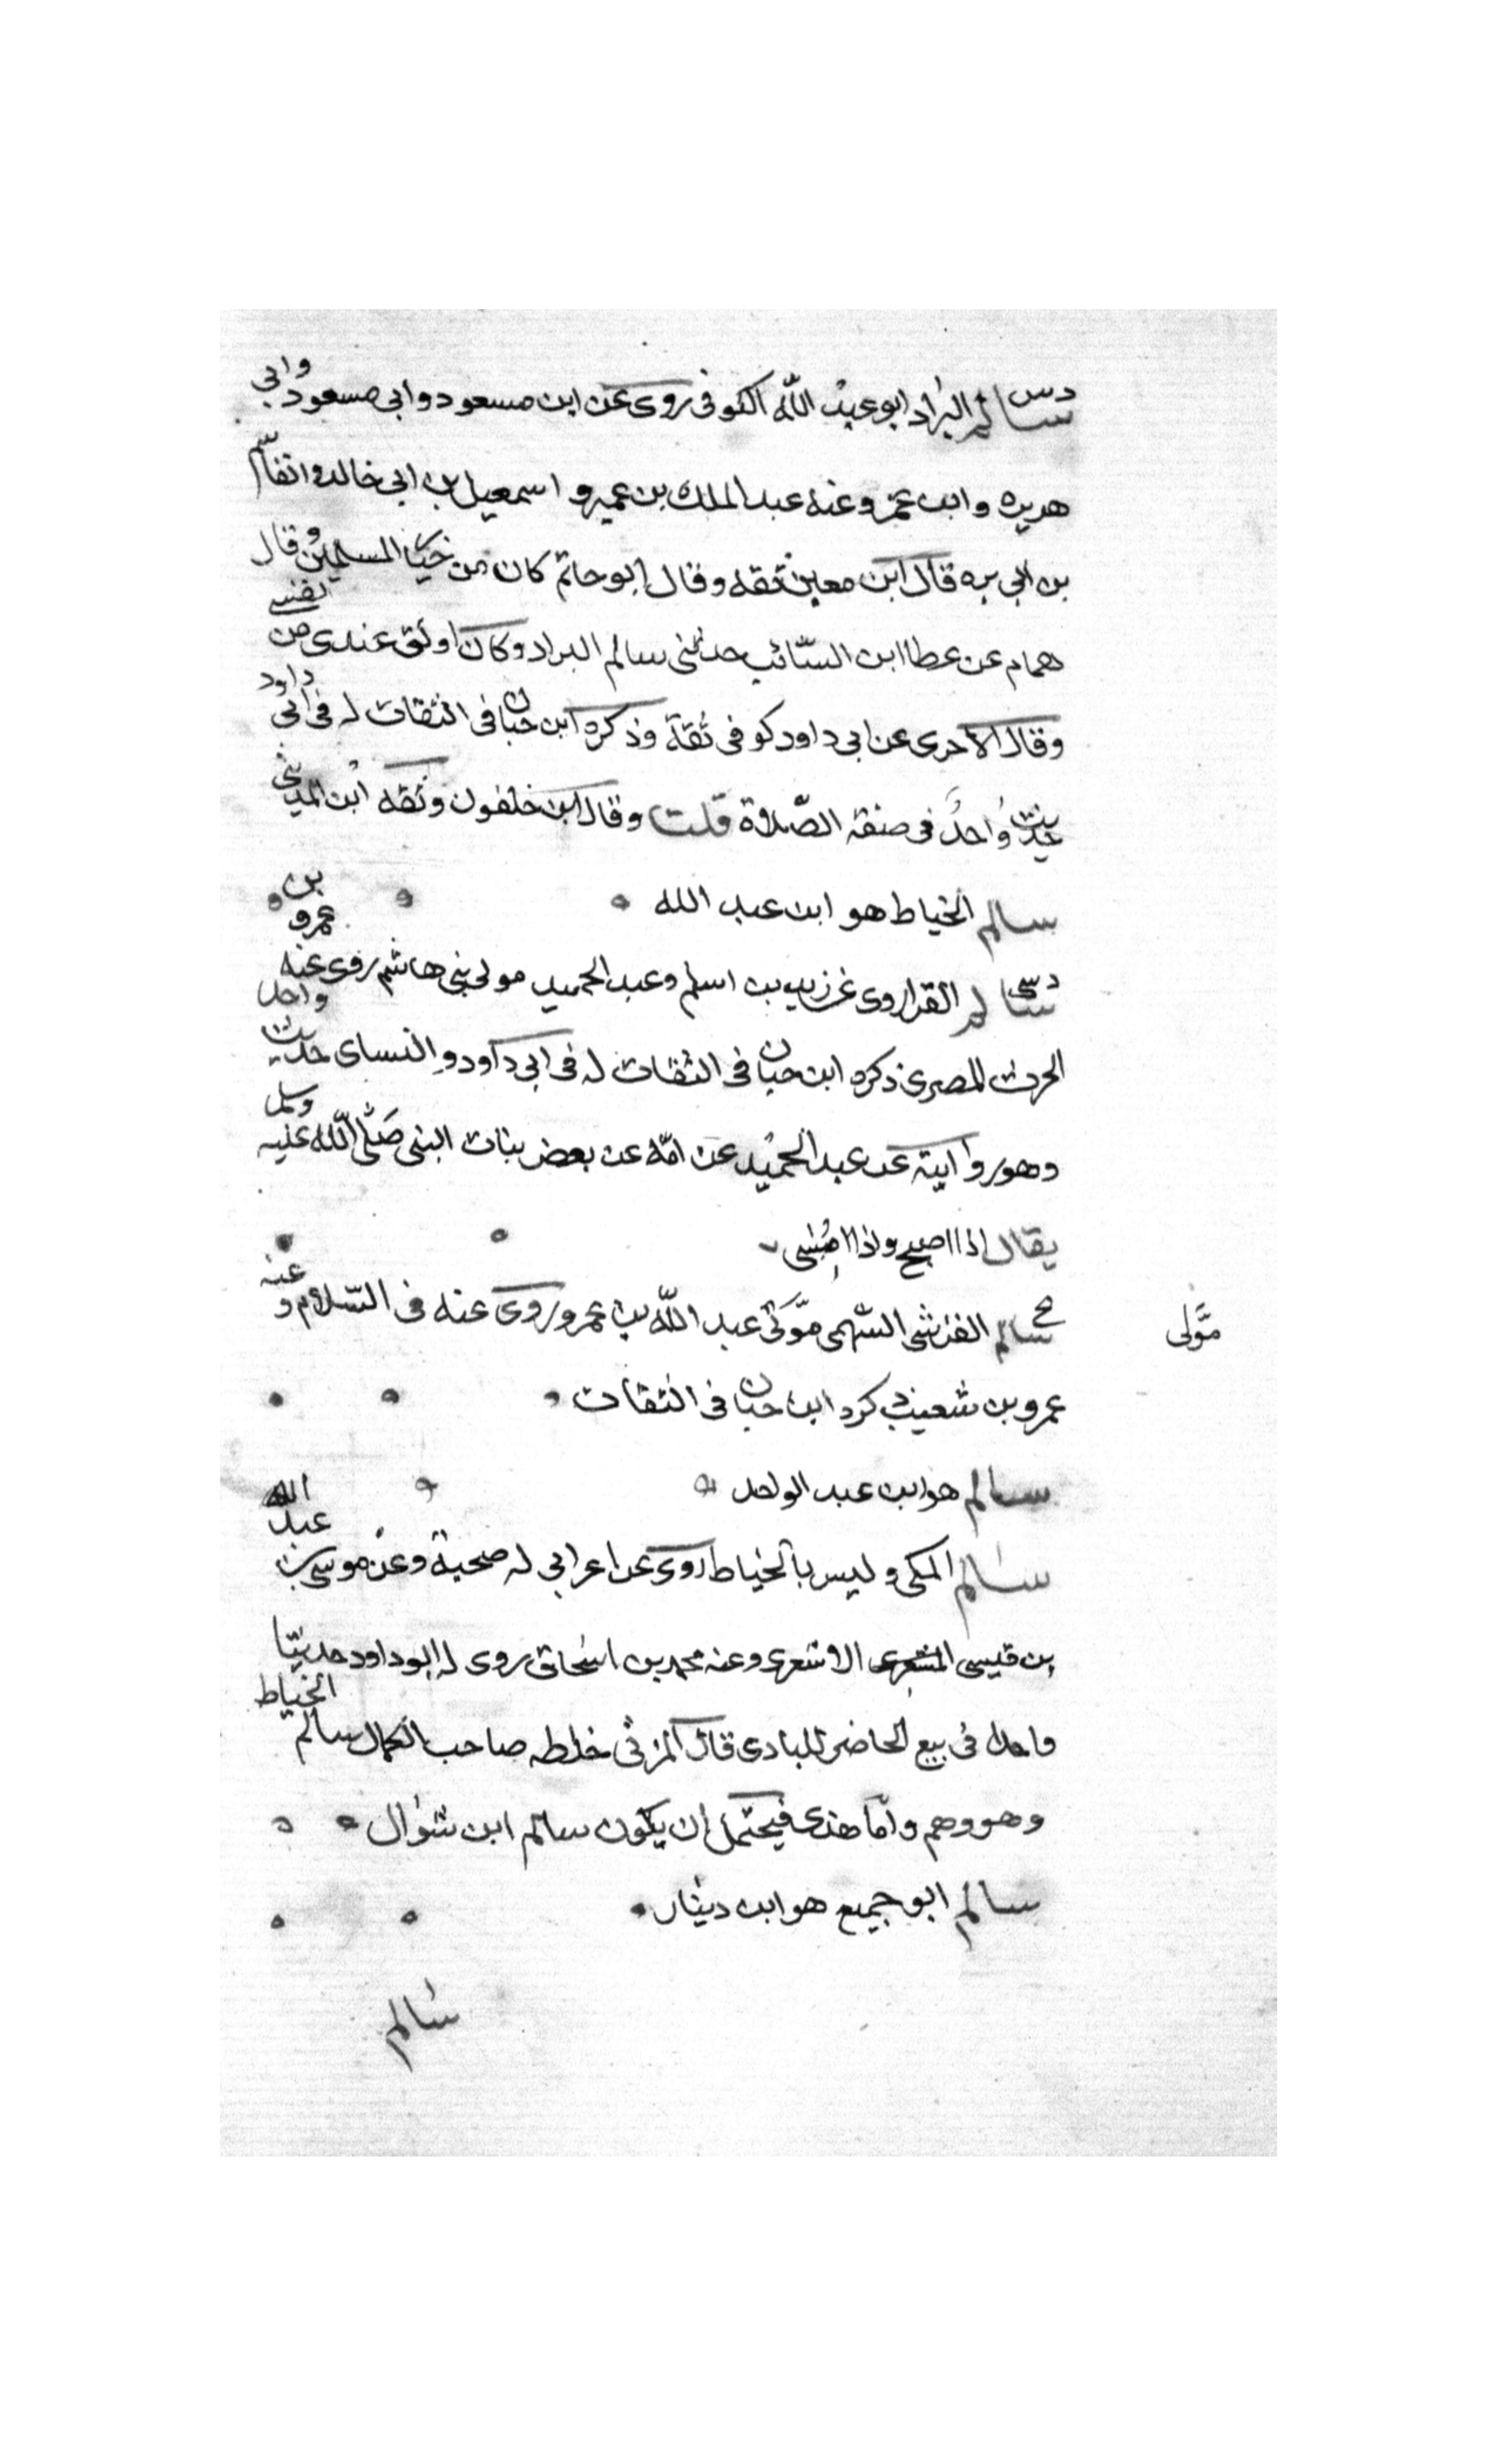 دس سالم البراد ابو عبد الله الكوفى روى عن ابن مسعود وابى مسعود وابى
هريره وابن عمر وعنه عبد الملك بن عمير و اسمعيل بن ابى خالد والقاسم
بن ابى بره قال ابن معين ثقه وقال ابو حاتم كان من خيار المسلمين وقال
همام عن عطا ابن السّائب حدثنى سالم البراد وكان اوثق عندى من نفسى
وقال الآجرى عن ابى داود كوفى ثقة وذكره ابن حبان فى الثقات له فى ابى داود
حديث واحد فى صفة الصّلاة قلت وقال ابن خلفون وثقه ابن المدينى
سالم الخياط هو ابن عبد الله
دسى سالم الفرا روى عن زيد بن اسلم وعبد الحميد مولى بنى هاشم روى عنه عمرو بن
الحرث المصرى ذكره ابن حبان فى الثقات له فى ابى داود والنساى حديث واحد
وهو روايته عن عبد الحميد عن امّه عن بعض بنات النبى صلى الله عليه وسلم
يقال اذا اصبح واذا امسى
سالم القرشى السّهمى مولى عبد الله بن عمرو روى عنه فى السّلام وعنه
مولى
عمرو بن شعيب ذكره ابن حبان فى الثقات
سالم هو ابن عبد الواحد
سالم المكى وليس بالخياط روى عن اعرابى له صحبة وعن موسى بن عبد الله
بن قيس الاشعرى وعنه محمد بن اسحاق روى له ابو داود حديثا
واحدا فى بيع الحاضر للبادى قال المزى خلطه صاحب الكمال سالم الخياط
وهو وهم وامّا هذا فيحتمل ان يكون سالم ابن شوال
سالم ابو جميع هو ابن دينار
سالم